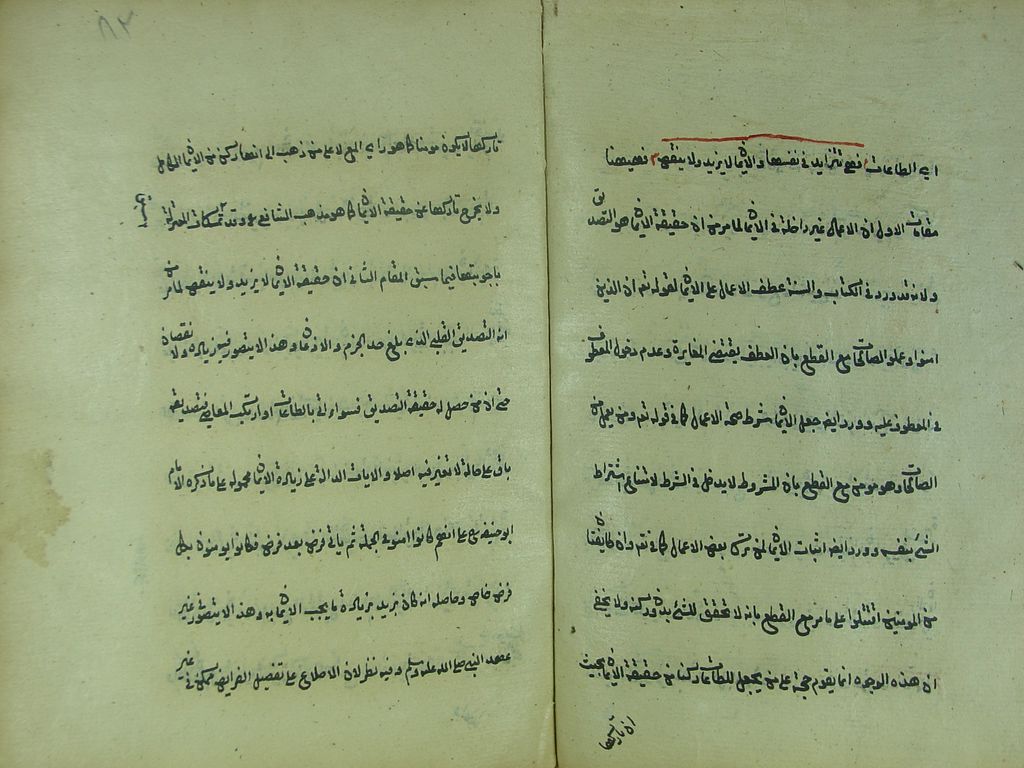 اي الطاعات فهي تتزايد في نفسها والايمان لا يزيد ولا ينقص فههنا
مقامات الاول ان الاعمال غير داخلة في الايمان لما مر من ان حقيقة الايمان هو التصديق
ولانه قد ورد في الكتاب والسنة عطف الاعمال على الايمان لقوله تع ان الذين
امنوا وعملوا الصالحات مع القطع بان العطف يقتضي المغايرة وعدم دخول المعطوف
في المعطوف عليه وورد ايض جعل الايمان شرط صحة الاعمال كما في قوله تع ومن يعمل من
الصالحات وهو مومن مع القطع بان المشروط لا يدخل في الشرط لامتناع اشتراط
الشئ بنفسه وورد ايض اثبات الايمان لمن ترك بعض الاعمال كما في تع وان طايفتان
من المومنين اقتتلوا على ما مر مع القطع بانه لا تحقق للشئ بدون ركنه ولا يخفى
ان هذه الوجوه انما يقوم حجة على من يجعل الطاعات ركنا من حقيقة الايمان بحيث
ان تاركها
٨٢
تاركها لا يكون مومنا كما هو راي المع لا على من ذهب الى انها ركن من الايمان الكامل
ولا يخرج تاركها عن حقيقة الايمان كما هو مذهب الشافعي وقد تمسكات المعتزلة
باجوبتها فيما سبق المقام الثاني ان حقيقة الايمان لا يزيد ولا ينقص لما مر من
انه التصديق القلبي الذي بلغ حد الجزم والاذعان وهذا لا يتصور فيه زيادة ولا نقصان
حتى ان من حصل له حقيقة التصديق فسواء اتى بالطاعات او ارتكب المعاصي فتصديقه
باق على حاله لا تغير فيه اصلا والايات الدالة على زيادة الايمان محمولة على ما ذكره الامام
ابو حنيفة رح انهم كانوا امنوا في الجملة ثم ياتي فرض بعد فرض فكانوا يومنون بكل
فرض خاص وحاصله انه كان يزيد بزيادة ما يجب الايمان به وهذا لا يتصور في غير
عهد النبي صلى الله عليه وسلم وفيه نظر لان الاطلاع على تفصيل الفرايض ممكن في غير